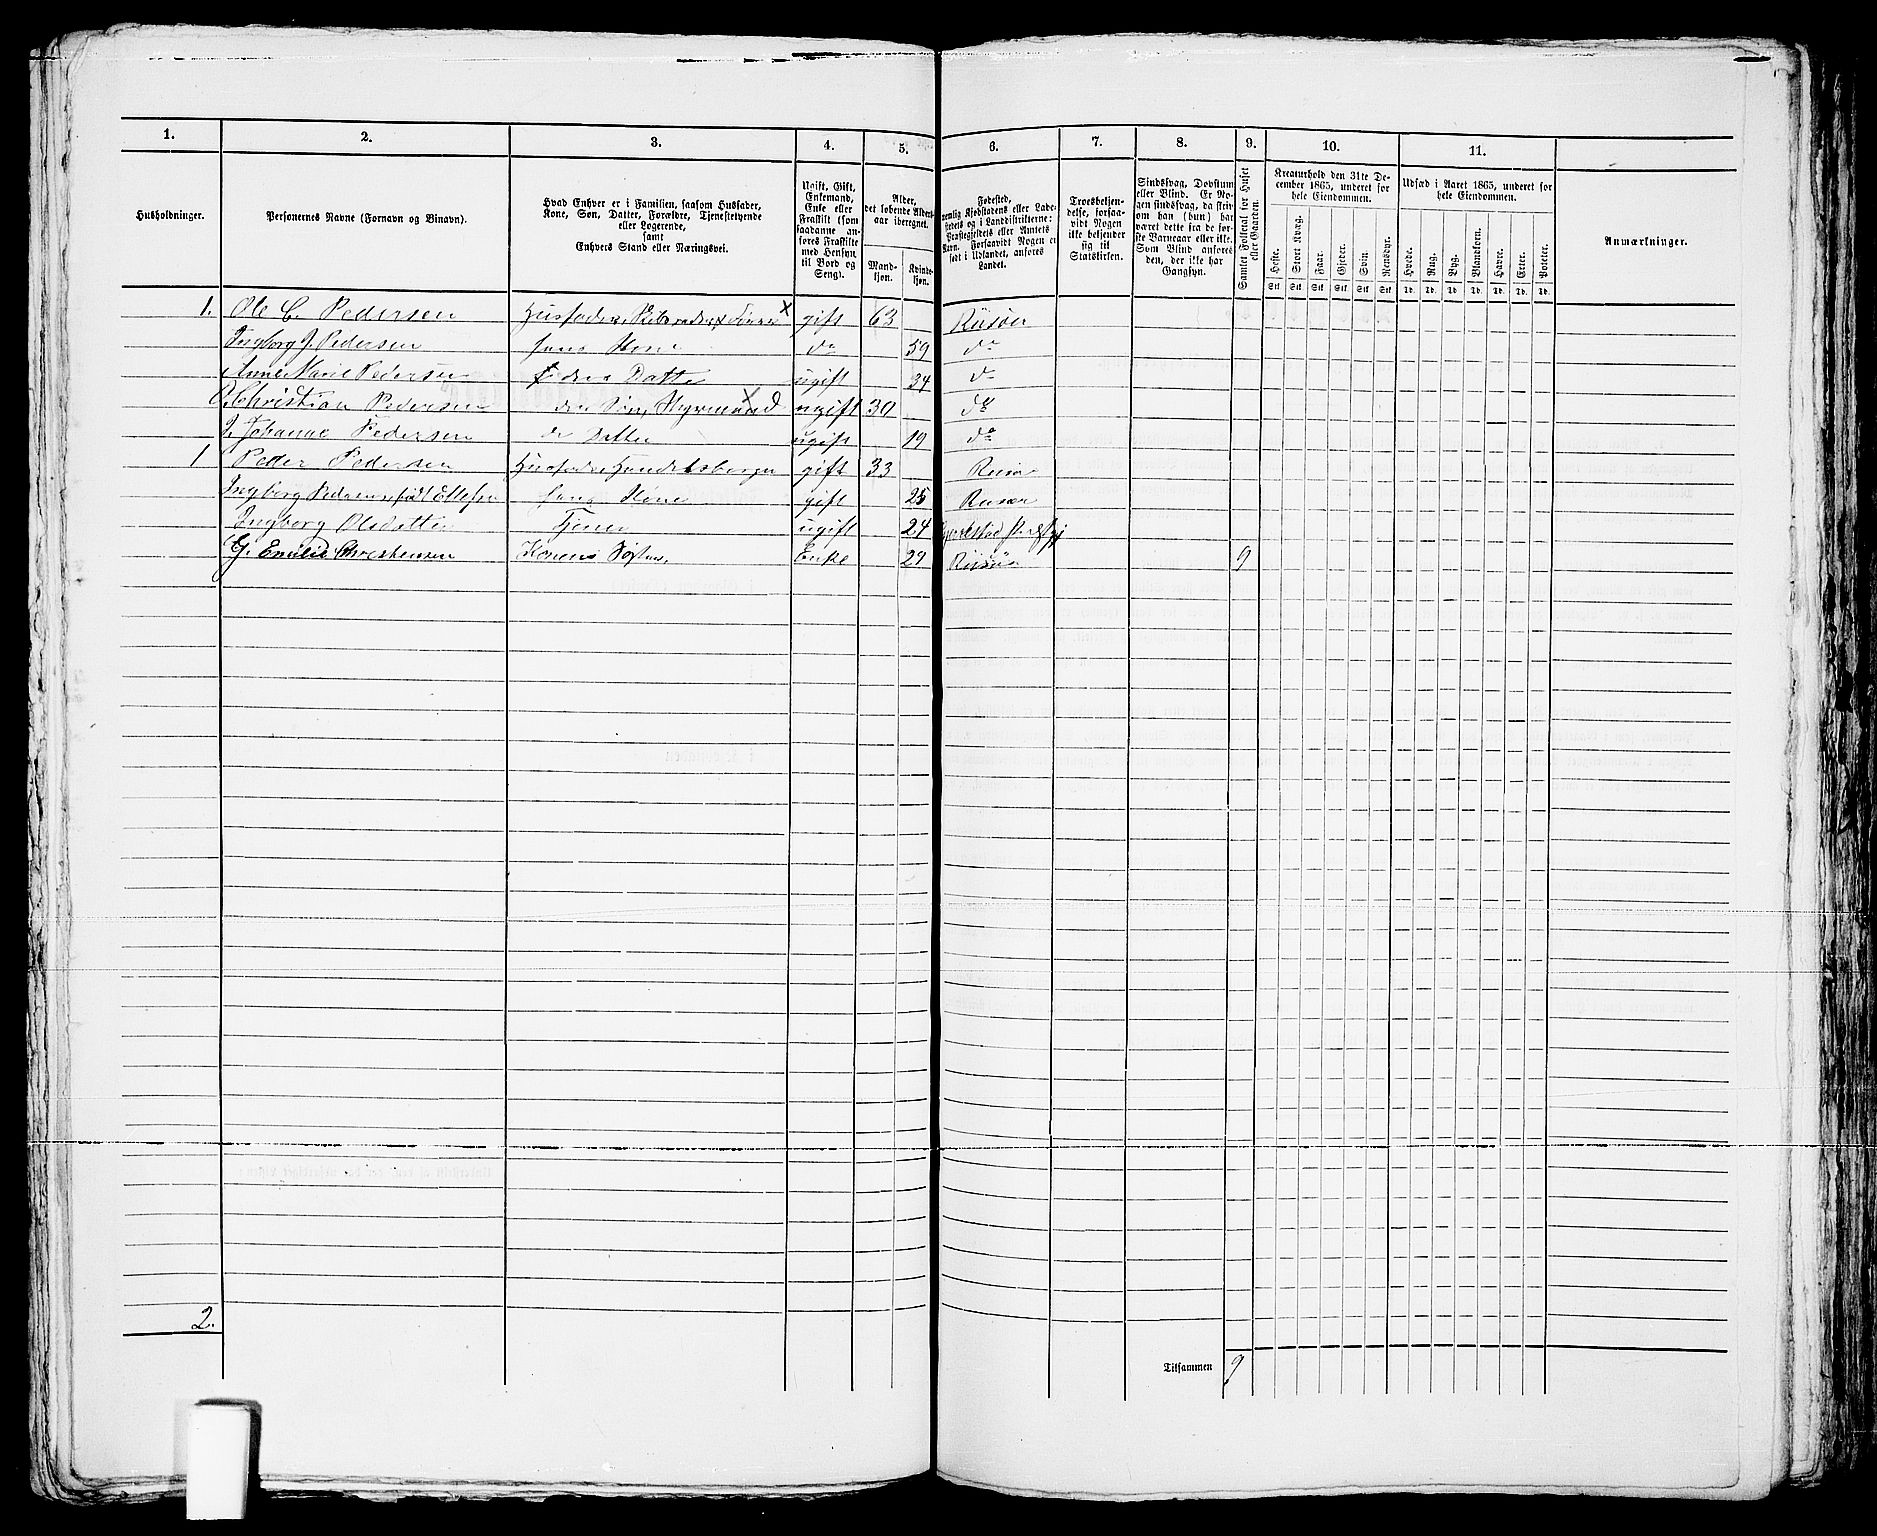 1. 2. 3. 4. 5. 6. 7. 8. 9. 10. 11.
Husholdninger.
Personernes Navne (Fornavn og Binavn).
Hvad Enhver er i Familien, saasom Husfader,
Kone, Søn, Datter, Forældre, Tjenestetyende
eller Logerende,
samt
Enhvers Stand eller Næringsvei.
Ugift, Gift,
Enkemand,
Enke eller
Fraskilt (som
saadanne an-
føres Fraskilte
med Hensyn
til Bord og
Seng).
Alder,
det løbende Alders-
aar iberegnet.
Mand-
kjøn.
Kvinde-
kjøn.
Fødested,
nemlig Kjøbstadens eller Lade-
stedets og i Landdistrikterne:
Præstegjeldets eller Amtets
Navn. Forsaavidt Nogen er
født i Udlandet, anføres
Landet.
Troesbekjen-
delse, forsaa-
vidt Nogen
ikke bekjender
sig til
Statskirken.
Sindssvag, Døvstum
eller Blind. Er No-
gen sindssvag, da skri-
ves om han (hun) har
været dette fra de før-
ste Barneaar eller ikke.
Som Blind ansees
den, der ikke har
Gangsyn.
Samlet Folketal for Huset
eller Gaarden.
Kreaturhold den 31te De-
cember 1865, underet for
hele Eiendommen.
Heste. Stort Kvæg. Faar. Gjeder. Svin. Rensdyr.
Stk. Stk. Stk. Stk. Stk. Stk.
Udsæd i Aaret 1865, underet for
hele Eiendommen.
Hvede. Rug. Byg. Blandkorn. Havre. Erter. Poteter.
Td. Td. Td. Td. Td. Td. Td.
Anmærkninger.
1. Ole C. Pedersen Husfader, gift 63 Riisøer
Ingborg J. Pedersen hans Kone do 59 do
Anne Marie Pedersen deres Datter ugift 34 do
O. Christian Pedersen des Søn, Styrmand ugift 30 do
J. Johanne Pedersen do Datter ugift 19 do
1 Peder Pedersen Husfader Handelsborger gift 33 Riisøer
Ingborg Pedersen født Ellefsen hans Kone gift 25 Riisøer
Ingborg Olsdatter Tjener ugift 24 Gjerrestad
G. Emilie Christensen Konens Søster, Enke 29 Riisøer 9
2.
Tilsammen 9